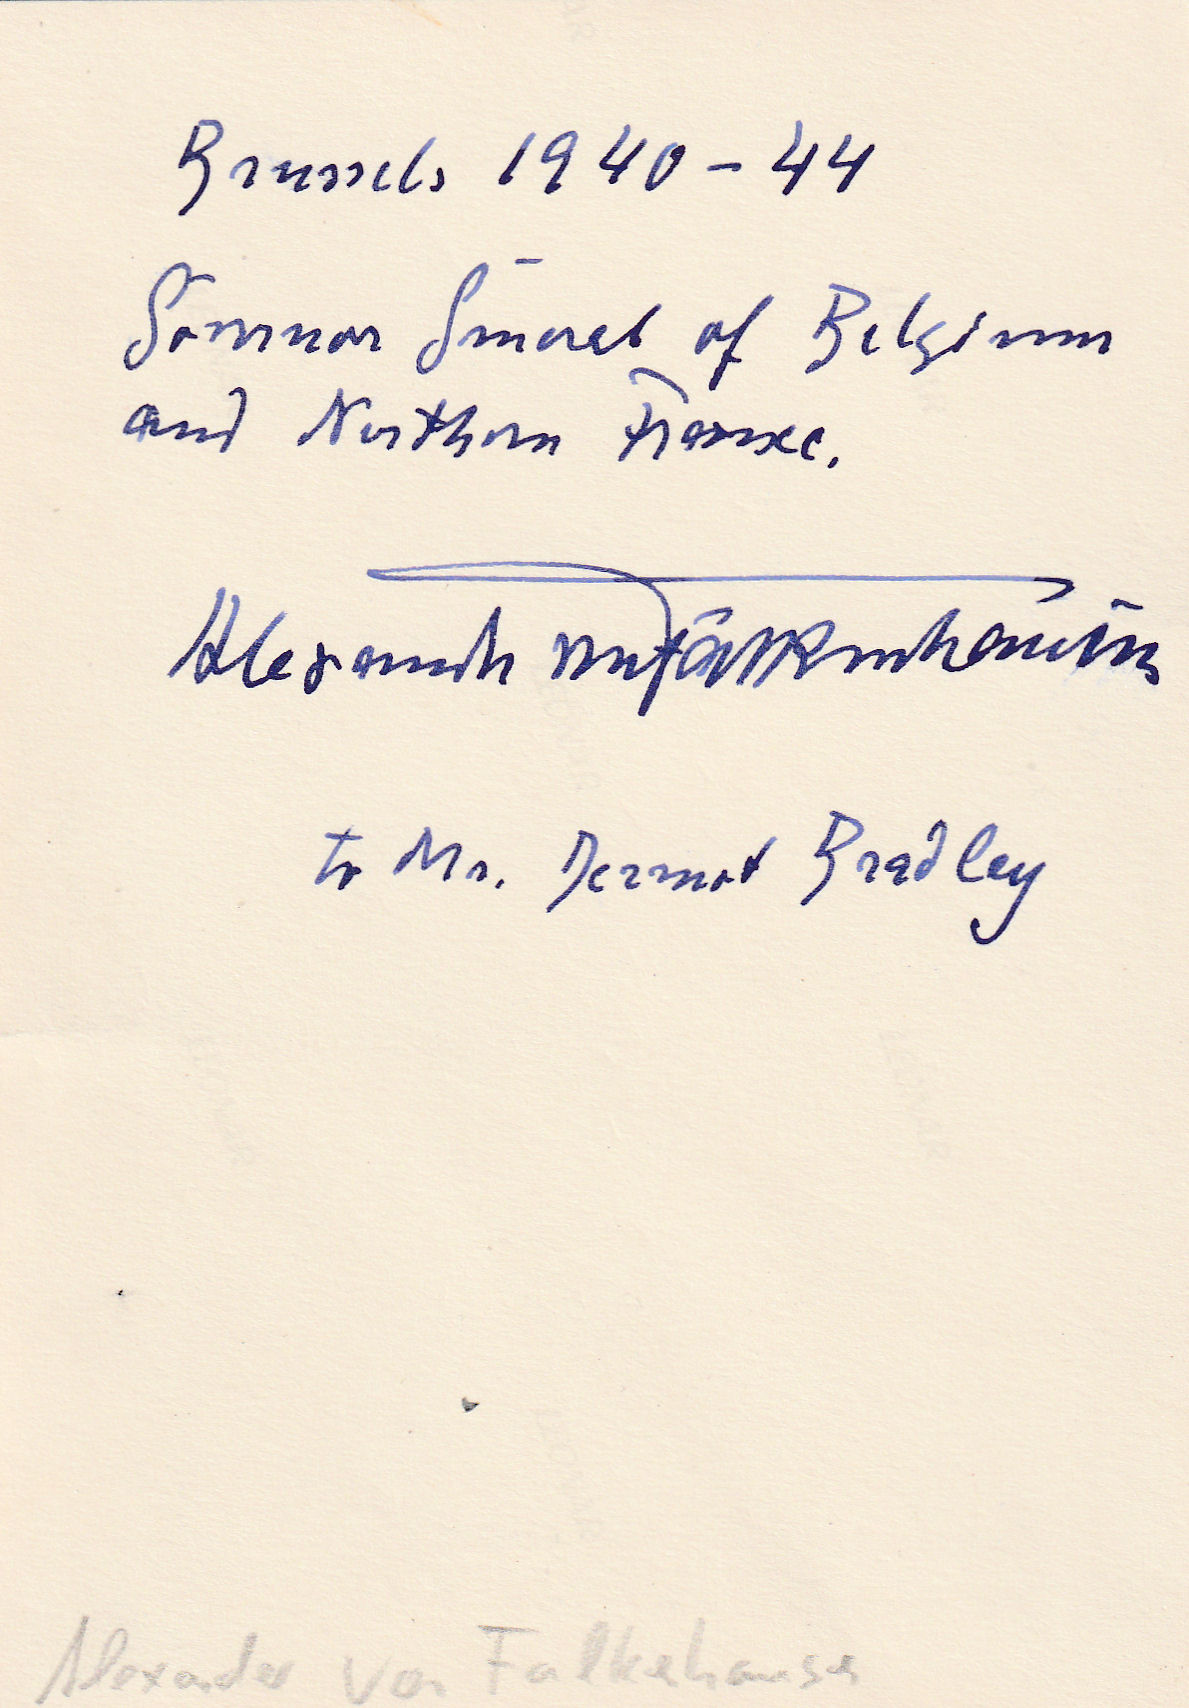 Brussels 1940-44
Governor General of Belgium
and Northern France.
Alexander von Falkenhausen
to Mr. Dermot Bradley
Alexander von Falkehausen